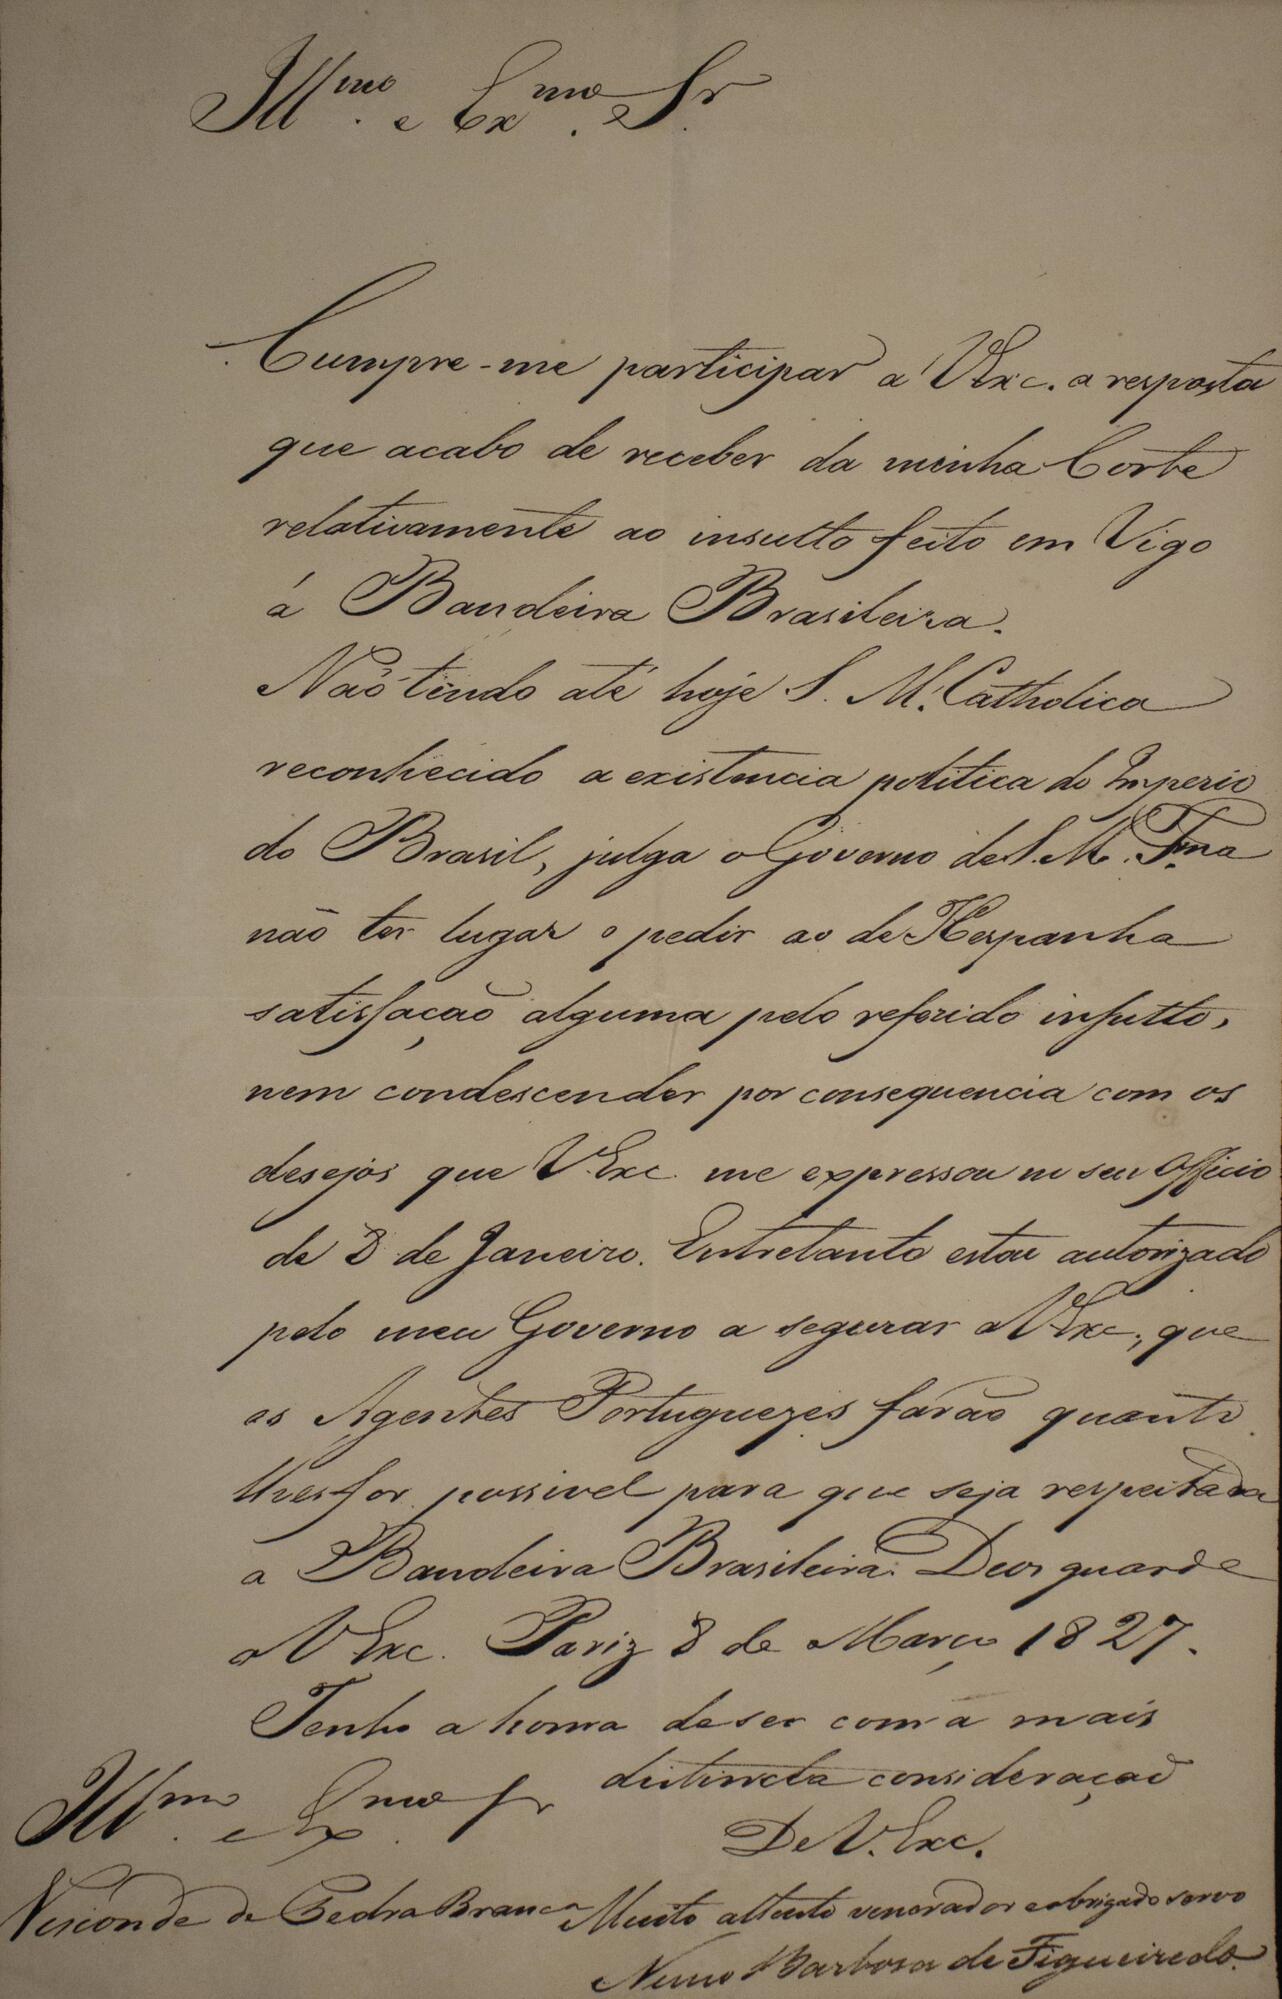 Illmo. e Exmo. Sr.
Cumpre-me participar a VExc. a resposta
que acabo de receber da minha Corte
relativamente ao insulto feito em Vigo
á Bandeira Brasileira.
Não tendo até hoje S. M. Catholica
reconhecido a existencia politica do Imperio
do Brasil, julga o Governo de S. M. Fma
não ter lugar o pedir ao de Hespanha
satisfação alguma pelo referido insulto,
nem condescender por consequencia com os
desejos que V.Exc. me expressou no seu Officio
de 8 de Janeiro. Entretanto estou autorizado
pelo meu Governo a segurar a VExc., que
os Agentes Portuguezes farão quanto
lhes for possivel para que seja respeitada
a Bandeira Brasileira. Deos guarde
a VExc. Pariz 8 de Março 1827.
Tenho a honra de ser com a mais
distincta consideração
De V. Exc.
Illmo. e Exmo. Sr
Visconde de Pedra Branca
Muito attento venerador e obrigado servo
Nuno Barbosa de Figueiredo.